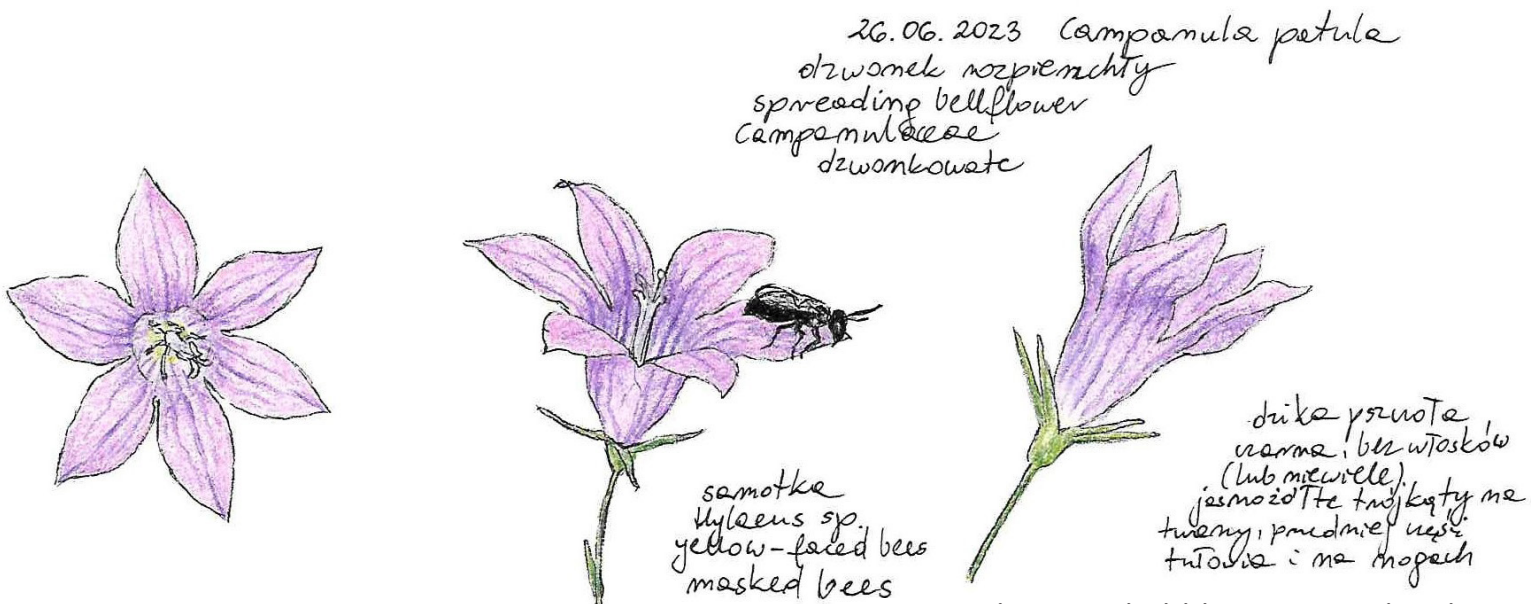 26.06.2023 Campanula patula
dzwonek rozpierzchły
spreading bellflower
Campanulaceae
dzwonkowate
samotka
Hylaeus sp.
yellow-faced bees
masked bees
dzika pszczoła
czarna, bez włosków
(lub niewiele),
jasnożółte trójkąty na
twarzy, przedniej części
tułowia i na nogach